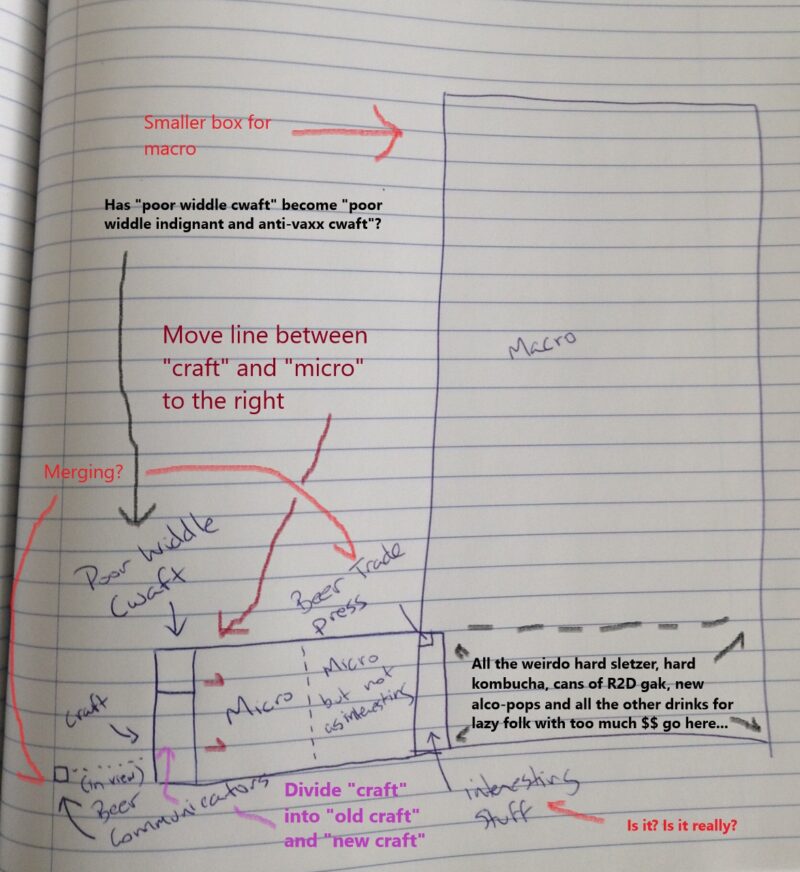 Smaller box for
macro
Has "poor widdle cwaft" become "poor
widdle indignant and anti-vaxx cwaft"?
Macro
Move line between
"craft" and "micro"
to the right
Merging?
Poor Widdle
Cwaft
Beer Trade
press
Craft
Micro
Micro
but not
as interesting
All the weirdo hard sletzer, hard
kombucha, cans of R2D gak, new
alco-pops and all the other drinks for
lazy folk with too much $$ go here...
(in view)
Beer
Communicators
Divide "craft"
into "old craft"
and "new craft"
interesting
Stuff
Is it? Is it really?